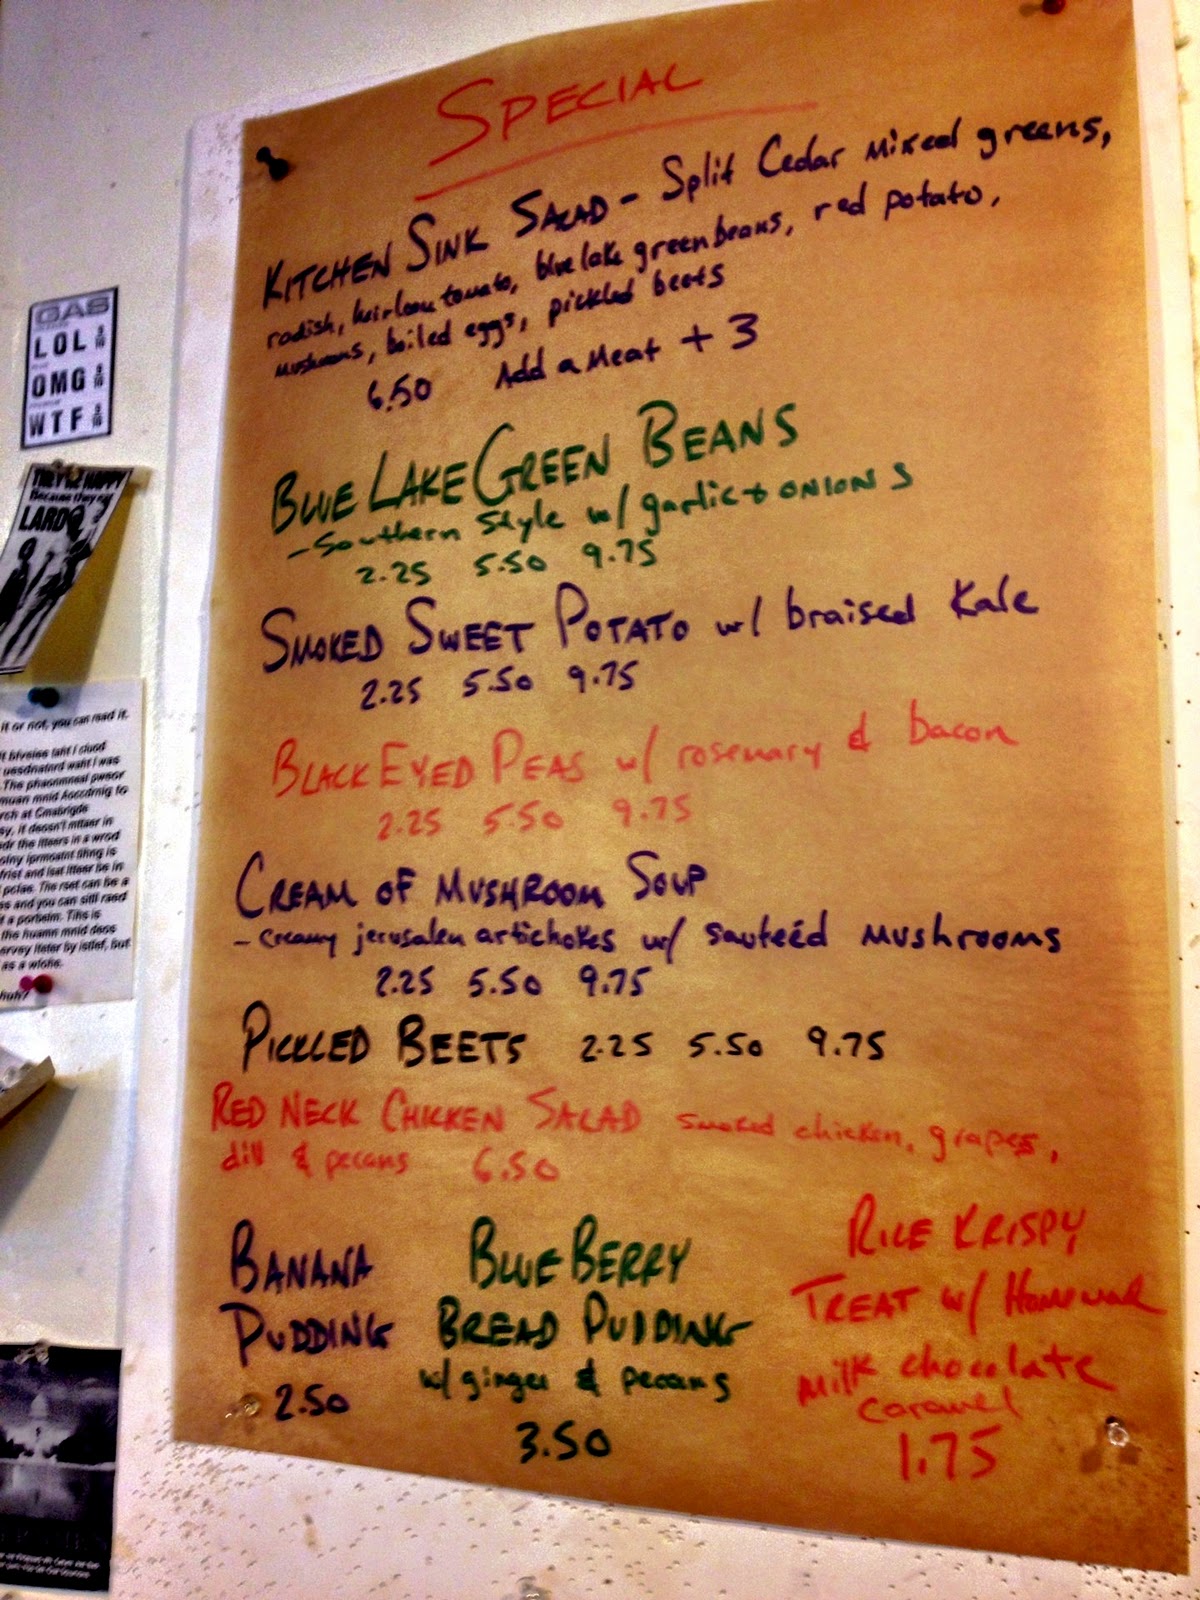 SPECIAL
KITCHEN SINK SALAD - Split Cedar mixed greens,
radish, heirloom tomato, blue lake green beans, red potato,
mushrooms, boiled eggs, pickled beets
6.50 Add a Meat + 3
BLUE LAKE GREEN BEANS
- Southern Style w/ garlic + ONIONS
2.25 5.50 9.75
SMOKED SWEET POTATO w/ braised Kale
2.25 5.50 9.75
BLACK EYED PEAS w/ rosemary & bacon
2.25 5.50 9.75
CREAM OF MUSHROOM SOUP
- creamy jerusalem artichokes w/ sauteéd mushrooms
2.25 5.50 9.75
PICKLED BEETS 2.25 5.50 9.75
RED NECK CHICKEN SALAD smoked chicken, grapes,
dill & pecans 6.50
BANANA
PUDDING
2.50
BLUE BERRY
BREAD PUDDING
w/ ginger & pecans
3.50
RICE KRISPY
TREAT w/ Homemade
milk chocolate
caramel
1.75
GAS
LOL 9/10
OMG 9/10
WTF 9/10
THEY'RE HAPPY
Because they eat
LARD
it or not, you can read it.
blveiee taht I cluod
uesdnatnrd waht I was
The phaonmneal pweor
muan mnid Aoccdrnig to
rch at Cmabrigde
sy, it deosn't mttaer in
odr the ltteers in a wrod
olny iprmoatnt tihng is
frist and lsat ltteer be in
pclae. The rset can be a
ss and you can sitll raed
t a porbelm. Tihs is
the huamn mnid deos
ervey lteter by istlef, but
as a wlohe.
huh?